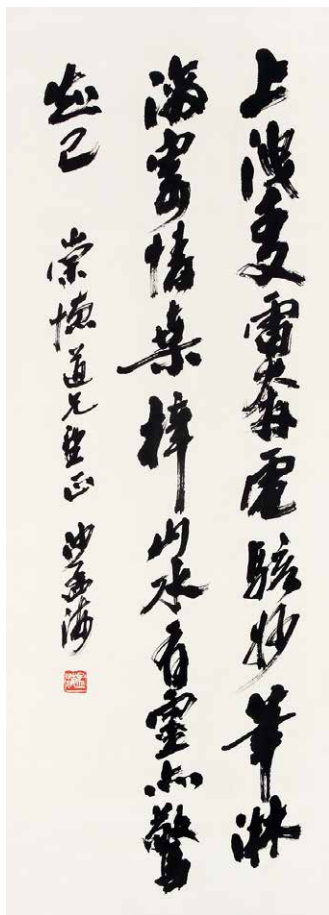 上雷奔電駭妙筆淋
漓寄情桑梓山水有靈亦驚
知己 崇道兄正 沙孟海